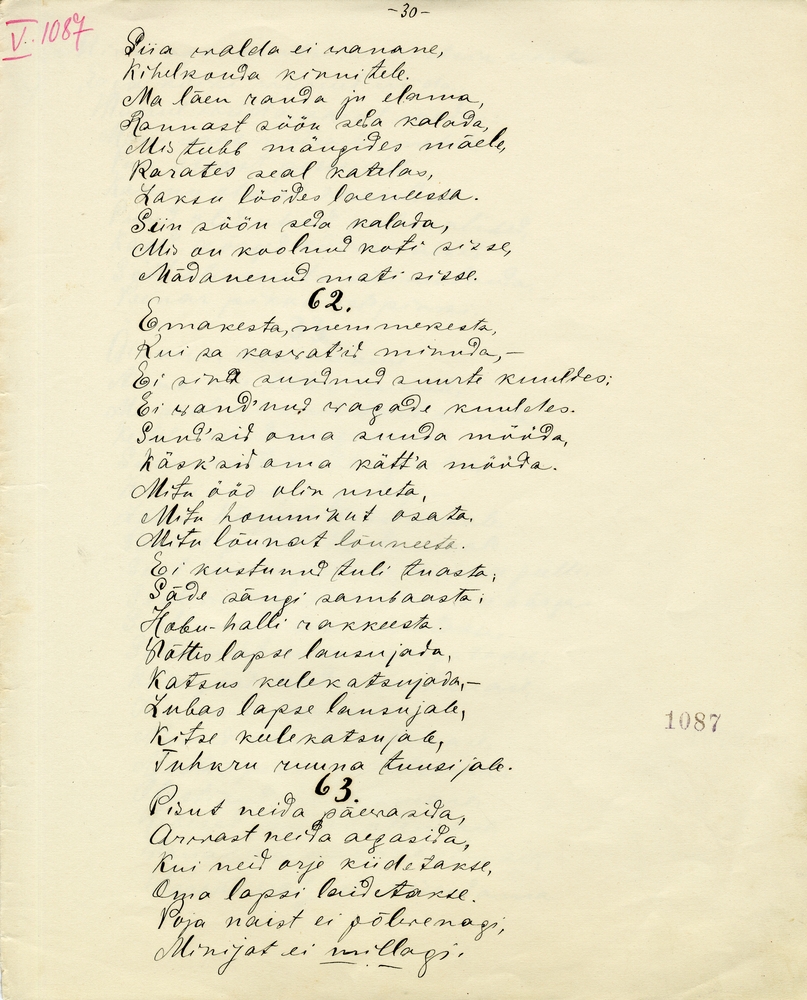 -30-
V. 1087
Siia walda ei wanane,
Kihelkonda kinnitele.
Ma läen randa ju elama,
Rannast söön seda kalada,
Mis tuleb mängides mäele,
Karates seal katelas,
Laksu löödes laenessa.
Siin söön seda kalada,
Mis on koolnud koti sisse,
Mädanenud mati sisse.
62.
Emakesta, memmekesta,
Kui sa kaswat'id minuda,-
Ei sind sundnud suurte kuuldes;
Ei wand'nud wagade kuuldes.
Sund'sid oma suuda mööda,
Käsk'sid oma kätt'a mööda.
Mitu ööd olin uneta,
Mitu hommikut osata,
Mitu lõunat lõuneeta.
Ei kustunud tuli tuasta;
Säde sängi sambaasta;
Hobu-halli rakkeesta.
Võttis lapse lausujada,
Katsus keelekatsujada,-
Lubas lapse lausujale,
Kitse keelekatsujale,
Tuhkru ruuna tuusijale.
63.
Pisut neida päewasida,
Arwast neida aegasida,
Kui neid orje kiidetakse,
Oma lapsi laidetakse.
Poja naist ei põlwenagi,
Minijat ei millagi.
1087